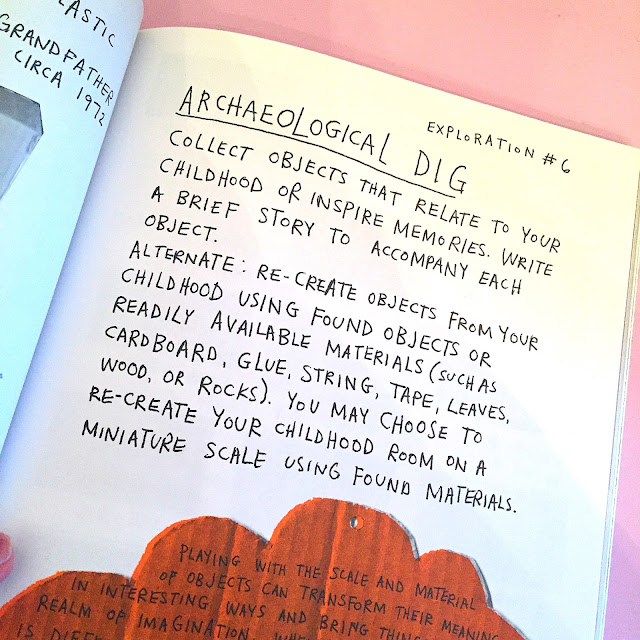 LASTIC
GRANDFATHER
CIRCA 1972
EXPLORATION #6
ARCHAEOLOGICAL DIG
COLLECT OBJECTS THAT RELATE TO YOUR
CHILDHOOD OR INSPIRE MEMORIES. WRITE
A BRIEF STORY TO ACCOMPANY EACH
OBJECT.
ALTERNATE: RE-CREATE OBJECTS FROM YOUR
CHILDHOOD USING FOUND OBJECTS OR
READILY AVAILABLE MATERIALS (SUCH AS
CARDBOARD, GLUE, STRING, TAPE, LEAVES,
WOOD, OR ROCKS). YOU MAY CHOOSE TO
RE-CREATE YOUR CHILDHOOD ROOM ON A
MINIATURE SCALE USING FOUND MATERIALS.
PLAYING WITH THE SCALE AND MATERIAL
OF OBJECTS CAN TRANSFORM THEIR MEANING
IN INTERESTING WAYS AND BRING
REALM OF IMAGINATION.
IS